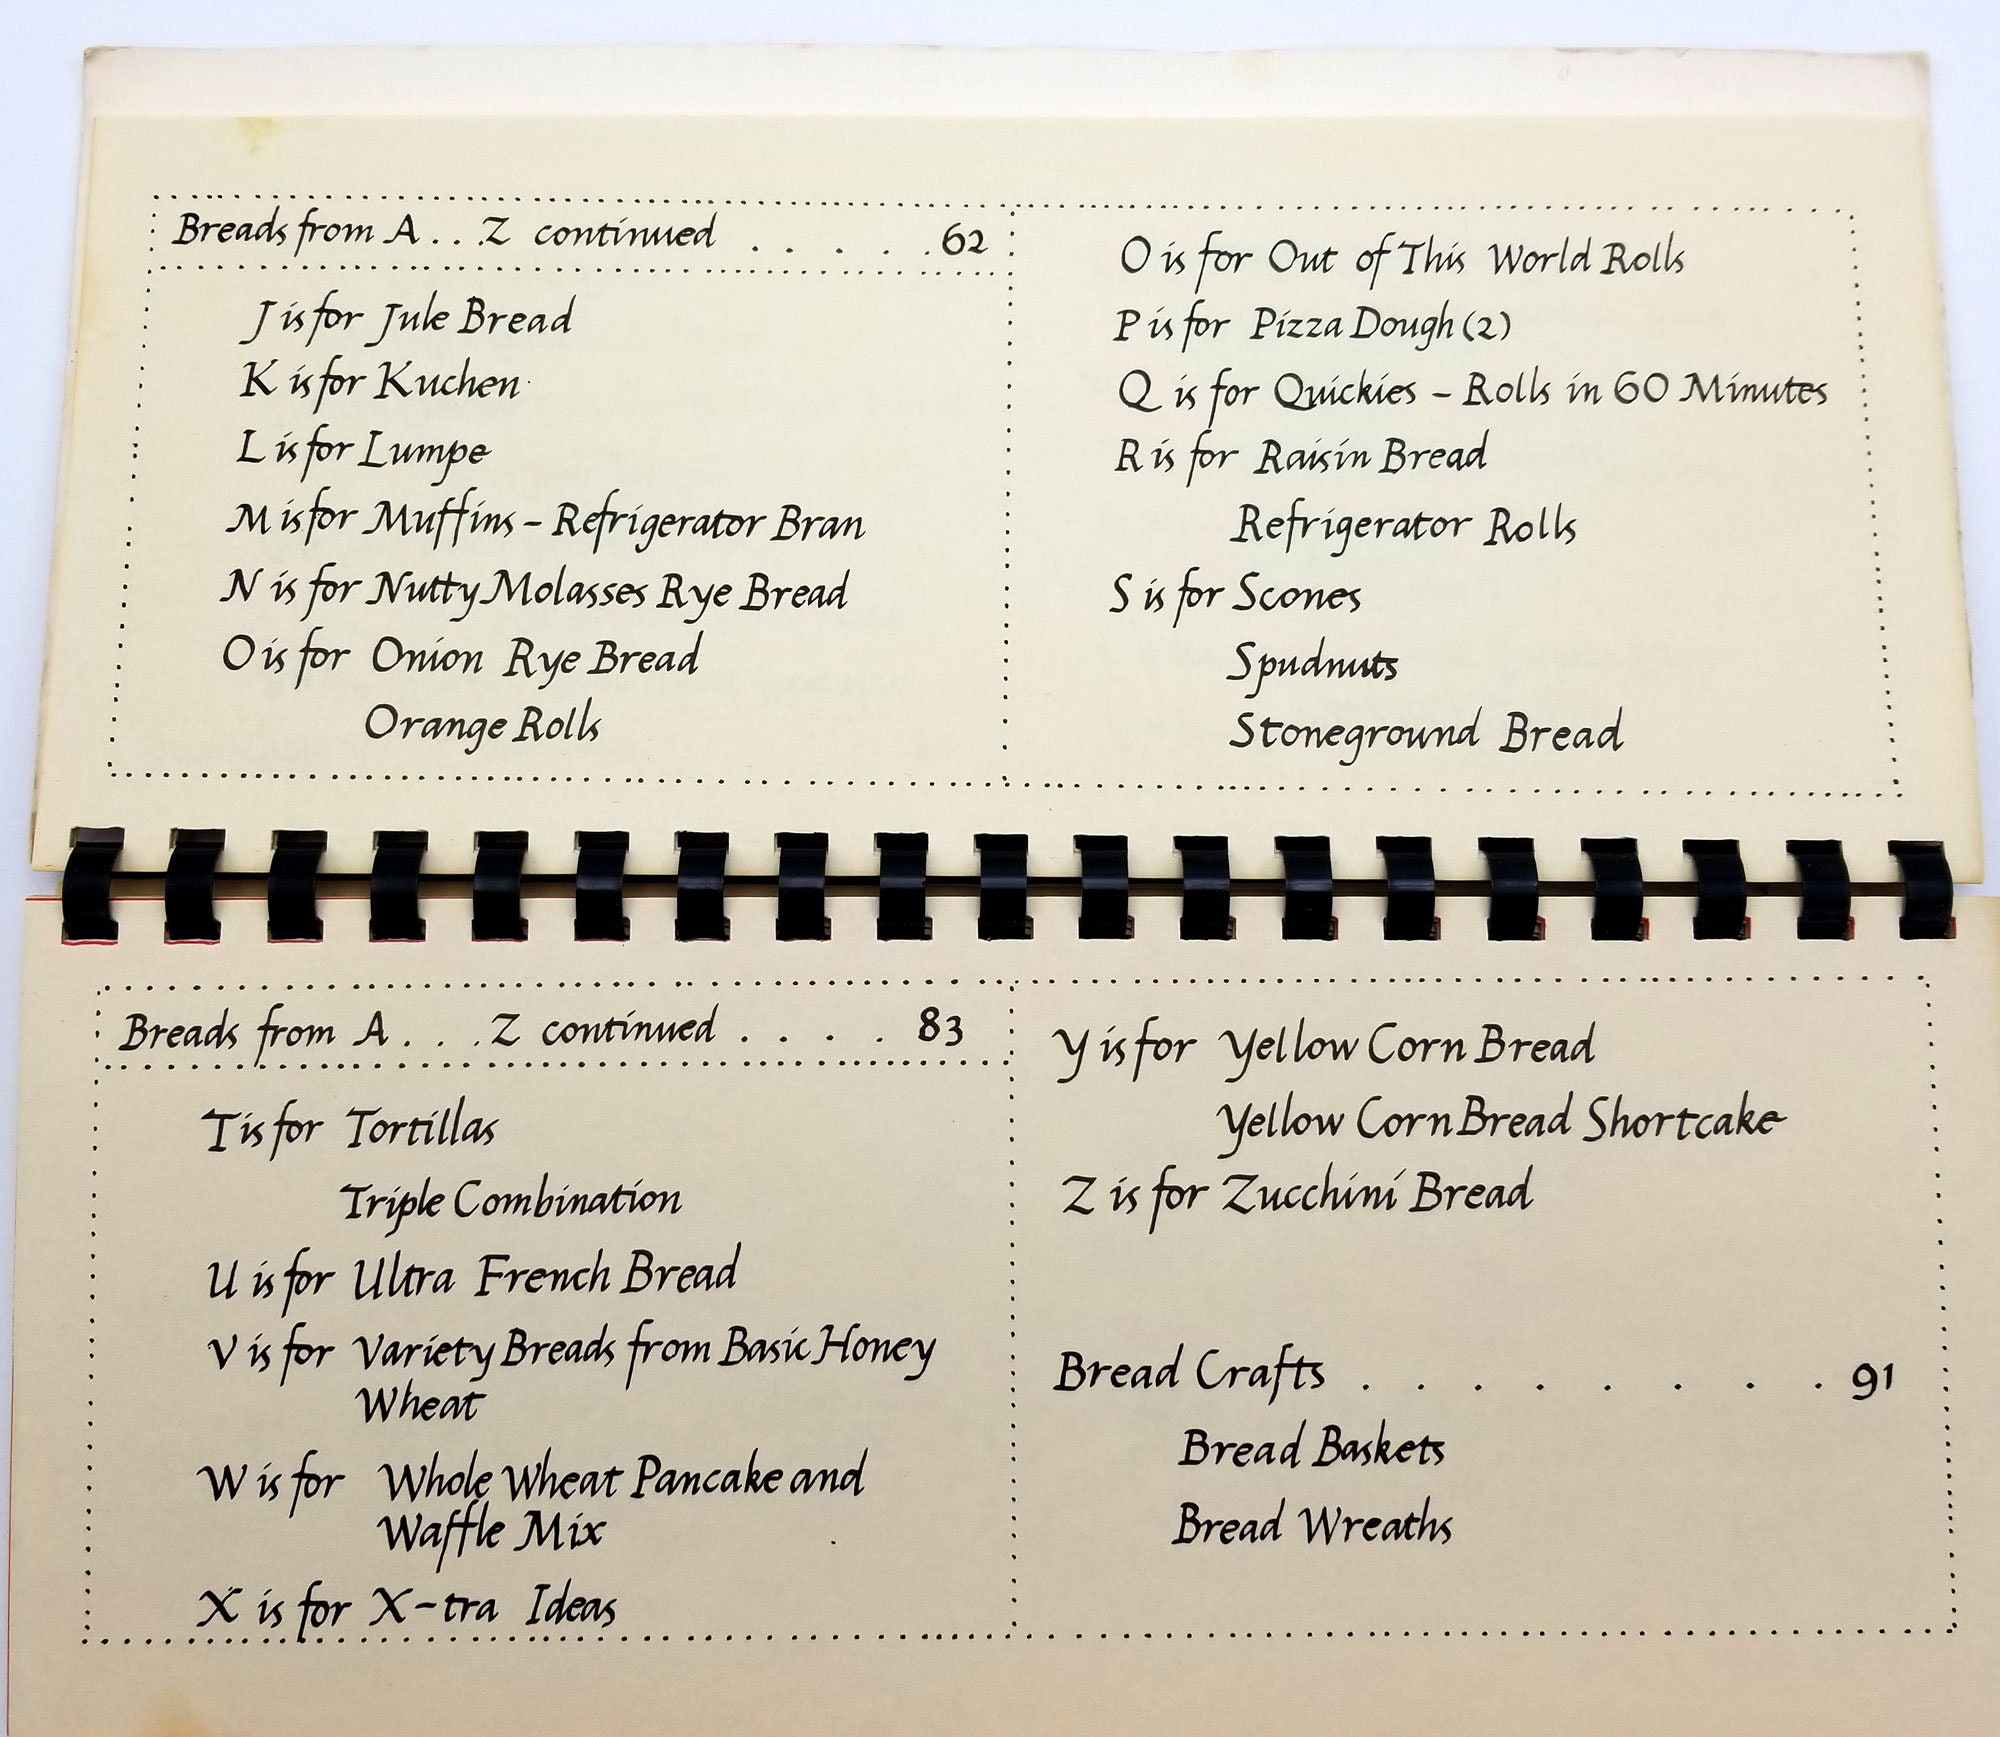 Breads from A . . . Z continued . . . . . 62
J is for Jule Bread
K is for Kuchen
L is for Lumpe
M is for Muffins - Refrigerator Bran
N is for Nutty Molasses Rye Bread
O is for Onion Rye Bread
Orange Rolls
O is for Out of This World Rolls
P is for Pizza Dough (2)
Q is for Quickies - Rolls in 60 Minutes
R is for Raisin Bread
Refrigerator Rolls
S is for Scones
Spudnuts
Stoneground Bread
Breads from A . . . Z continued . . . . 83
T is for Tortillas
Triple Combination
U is for Ultra French Bread
V is for Variety Breads from Basic Honey
Wheat
W is for Whole Wheat Pancake and
Waffle Mix
X is for X-tra Ideas
Y is for Yellow Corn Bread
Yellow Corn Bread Shortcake
Z is for Zucchini Bread
Bread Crafts . . . . . . . . 91
Bread Baskets
Bread Wreaths